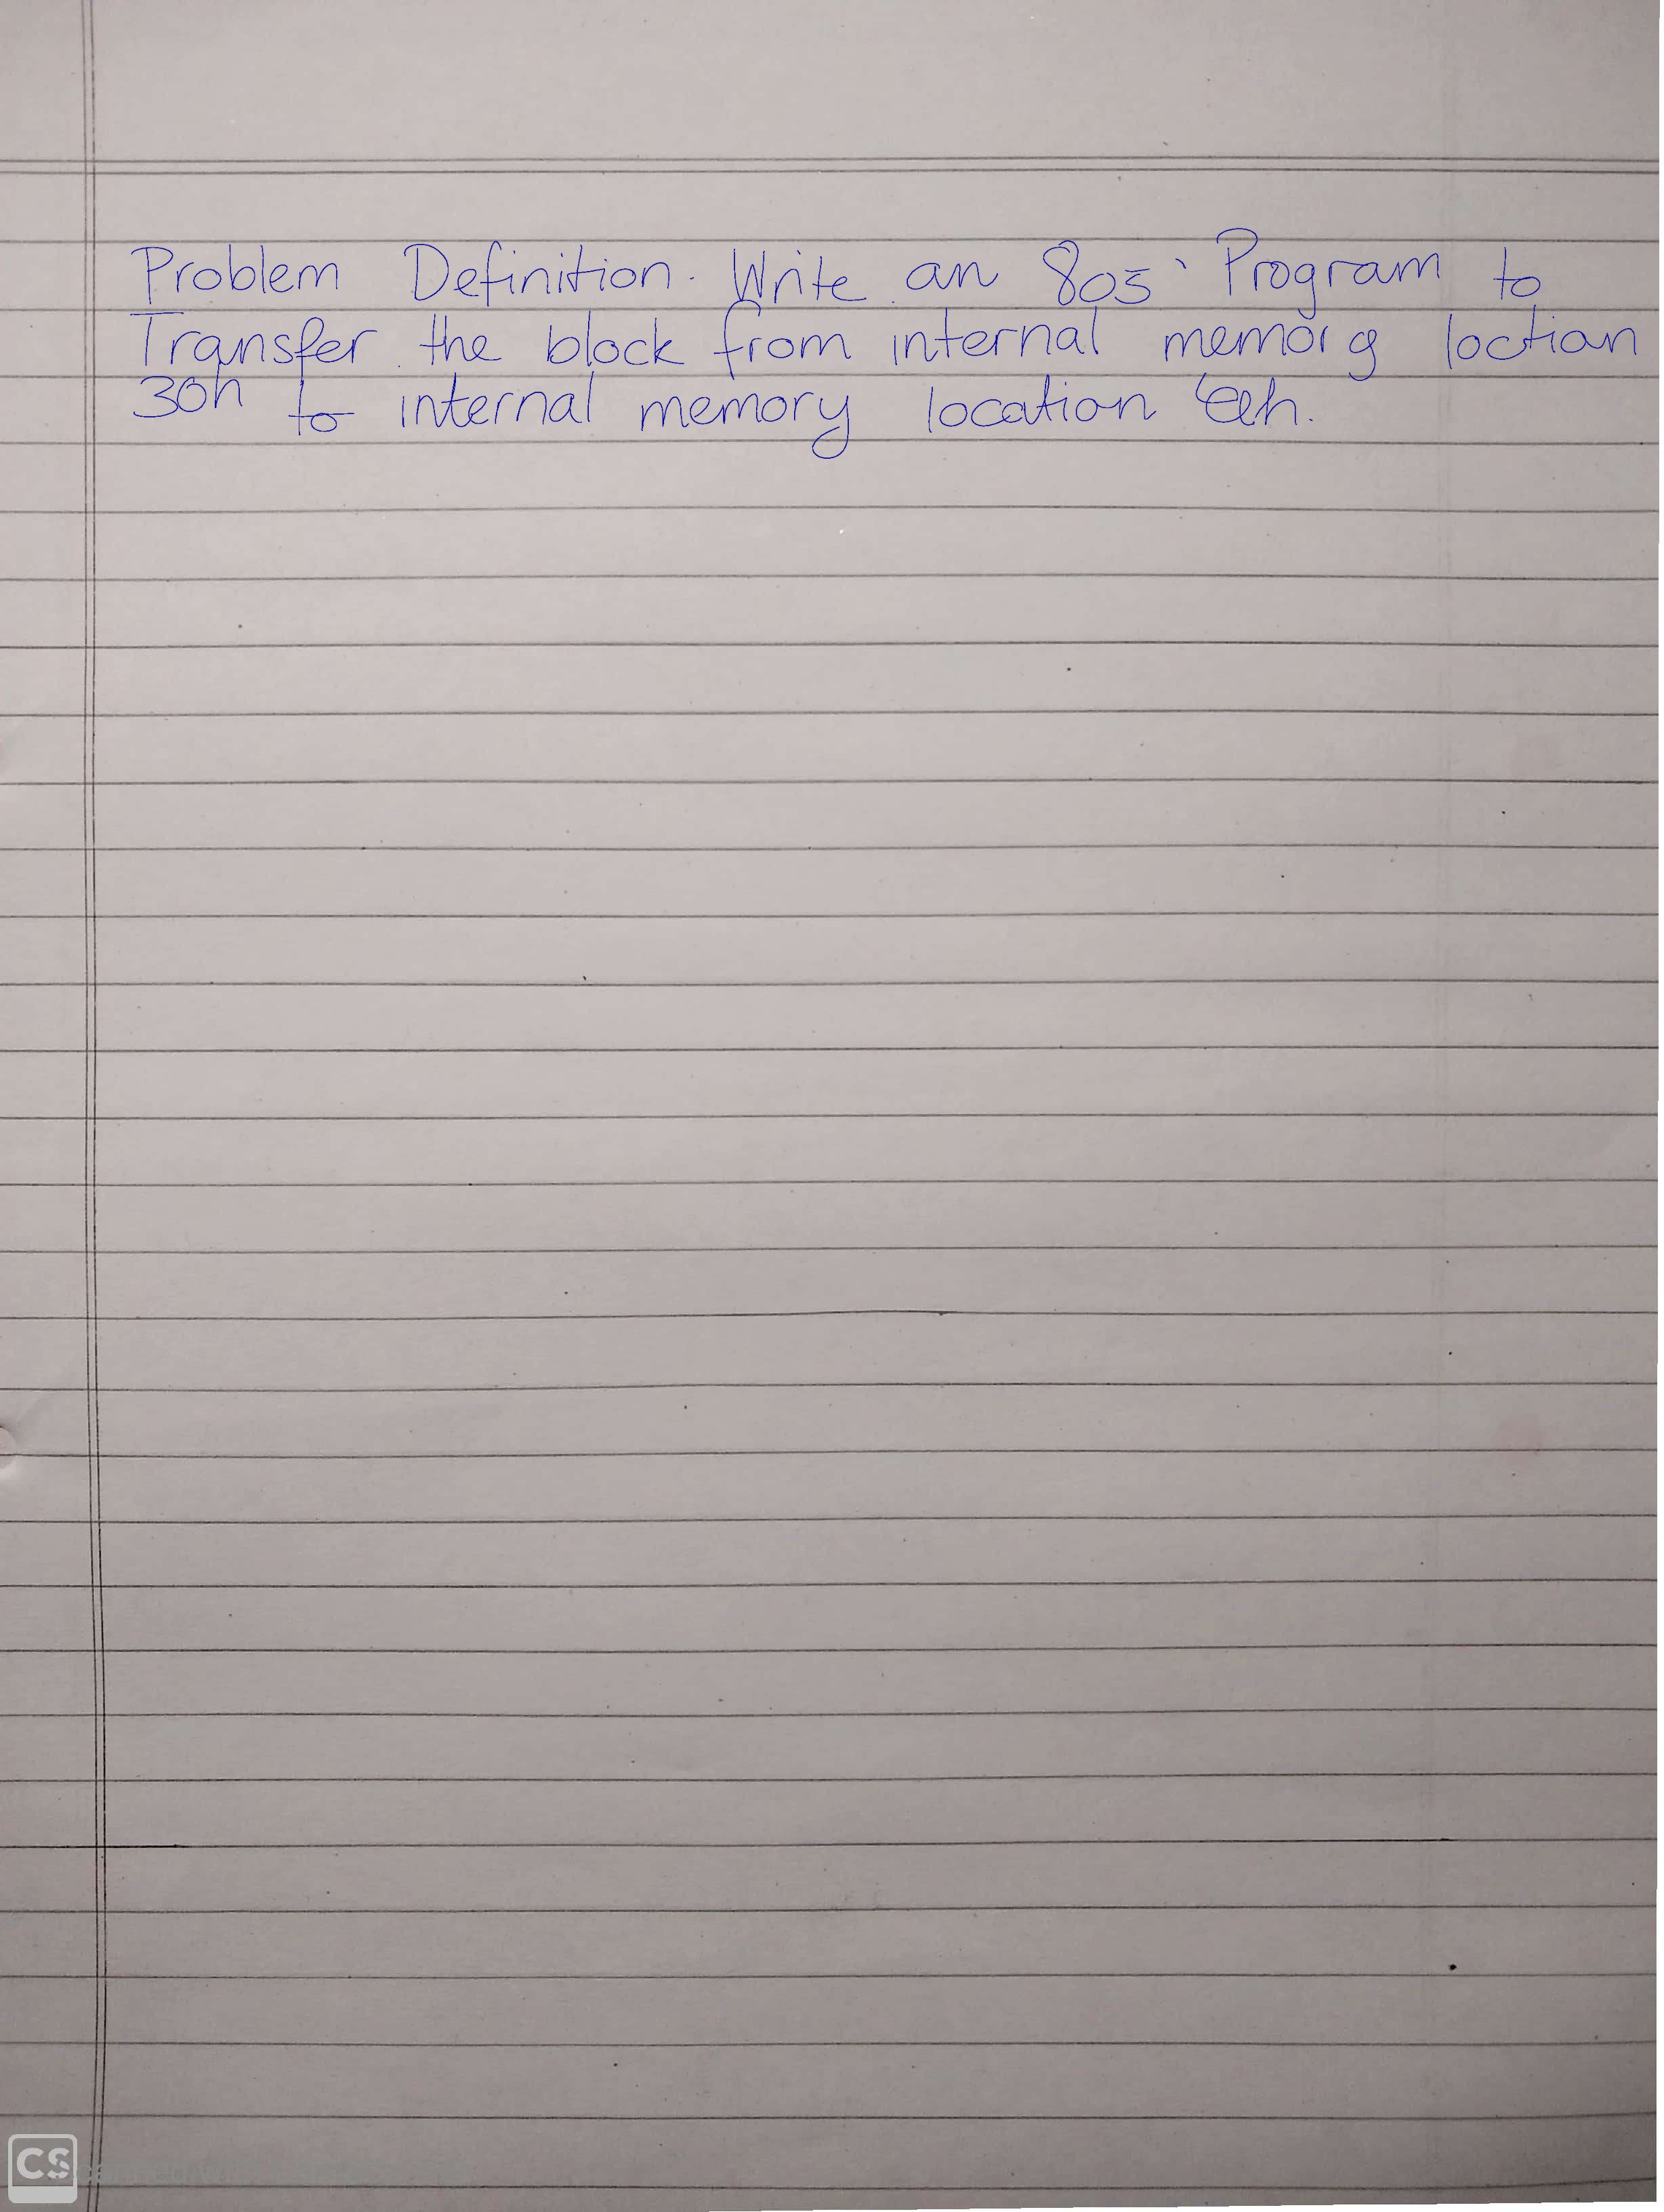 Problem Definition. Write an 805` Program to
Transfer the block from internal memorg loction
30h to internal memory location
CS